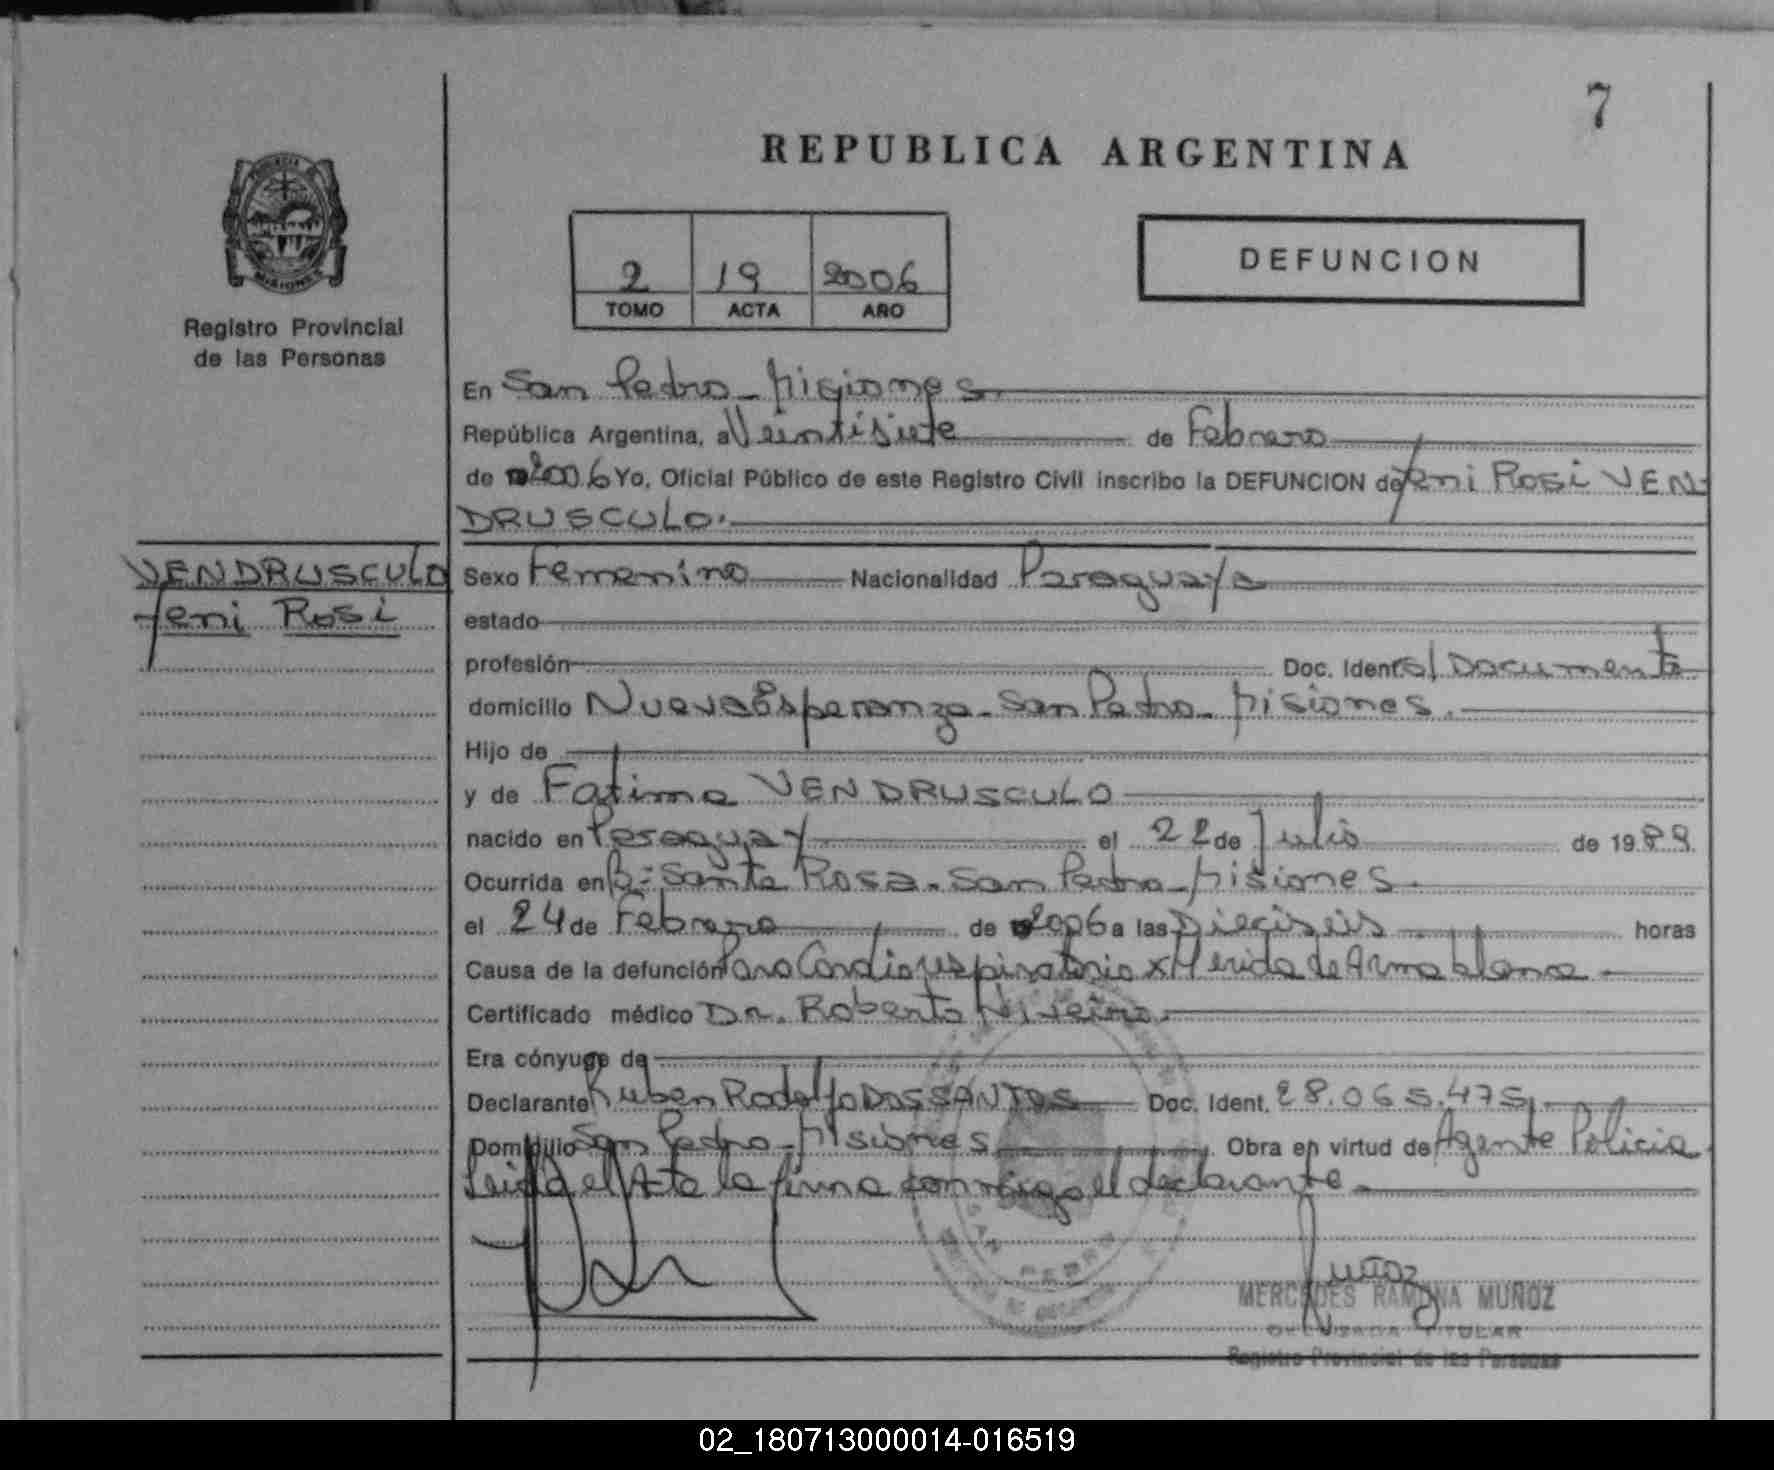 7
REPUBLICA ARGENTINA
DEFUNCION
2 19 2006
TOMO ACTA AÑO
PROVINCIA DE MISIONES
Registro Provincial
de las Personas
En San Pedro - Misiones.
República Argentina, a Veintisiete de Febrero
de 2006 Yo, Oficial Público de este Registro Civil inscribo la DEFUNCION de Yeni Rosi VEN-
DRUSCULO.
VENDRUSCULO
Yeni Rosi
Sexo Femenino Nacionalidad Paraguaya
estado
profesión Doc. Ident. s/ Documento
domicilio Nueva Esperanza - San Pedro - Misiones.
Hijo de
y de Fatima VENDRUSCULO
nacido en Paraguay el 22 de Julio de 1989.
Ocurrida en B= Santa Rosa - San Pedro - Misiones.
el 24 de Febrero de 2006 a las Dieciseis horas
Causa de la defunción Paro Cardiorespiratorio x Herida de Arma blanca
Certificado médico Dr. Roberto
Era cónyuge de
Declarante Ruben Rodolfo DOS SANTOS Doc. Ident. 28.065.475
Domicilio San Pedro - Misiones Obra en virtud de Agente Policia.
Leida el Acta la firma conmigo el declarante
SAN PEDRO
Muñoz
MERCEDES RAMONA MUÑOZ
DELEGADA TITULAR
Registro Provincial de las Personas
02_180713000014-016519